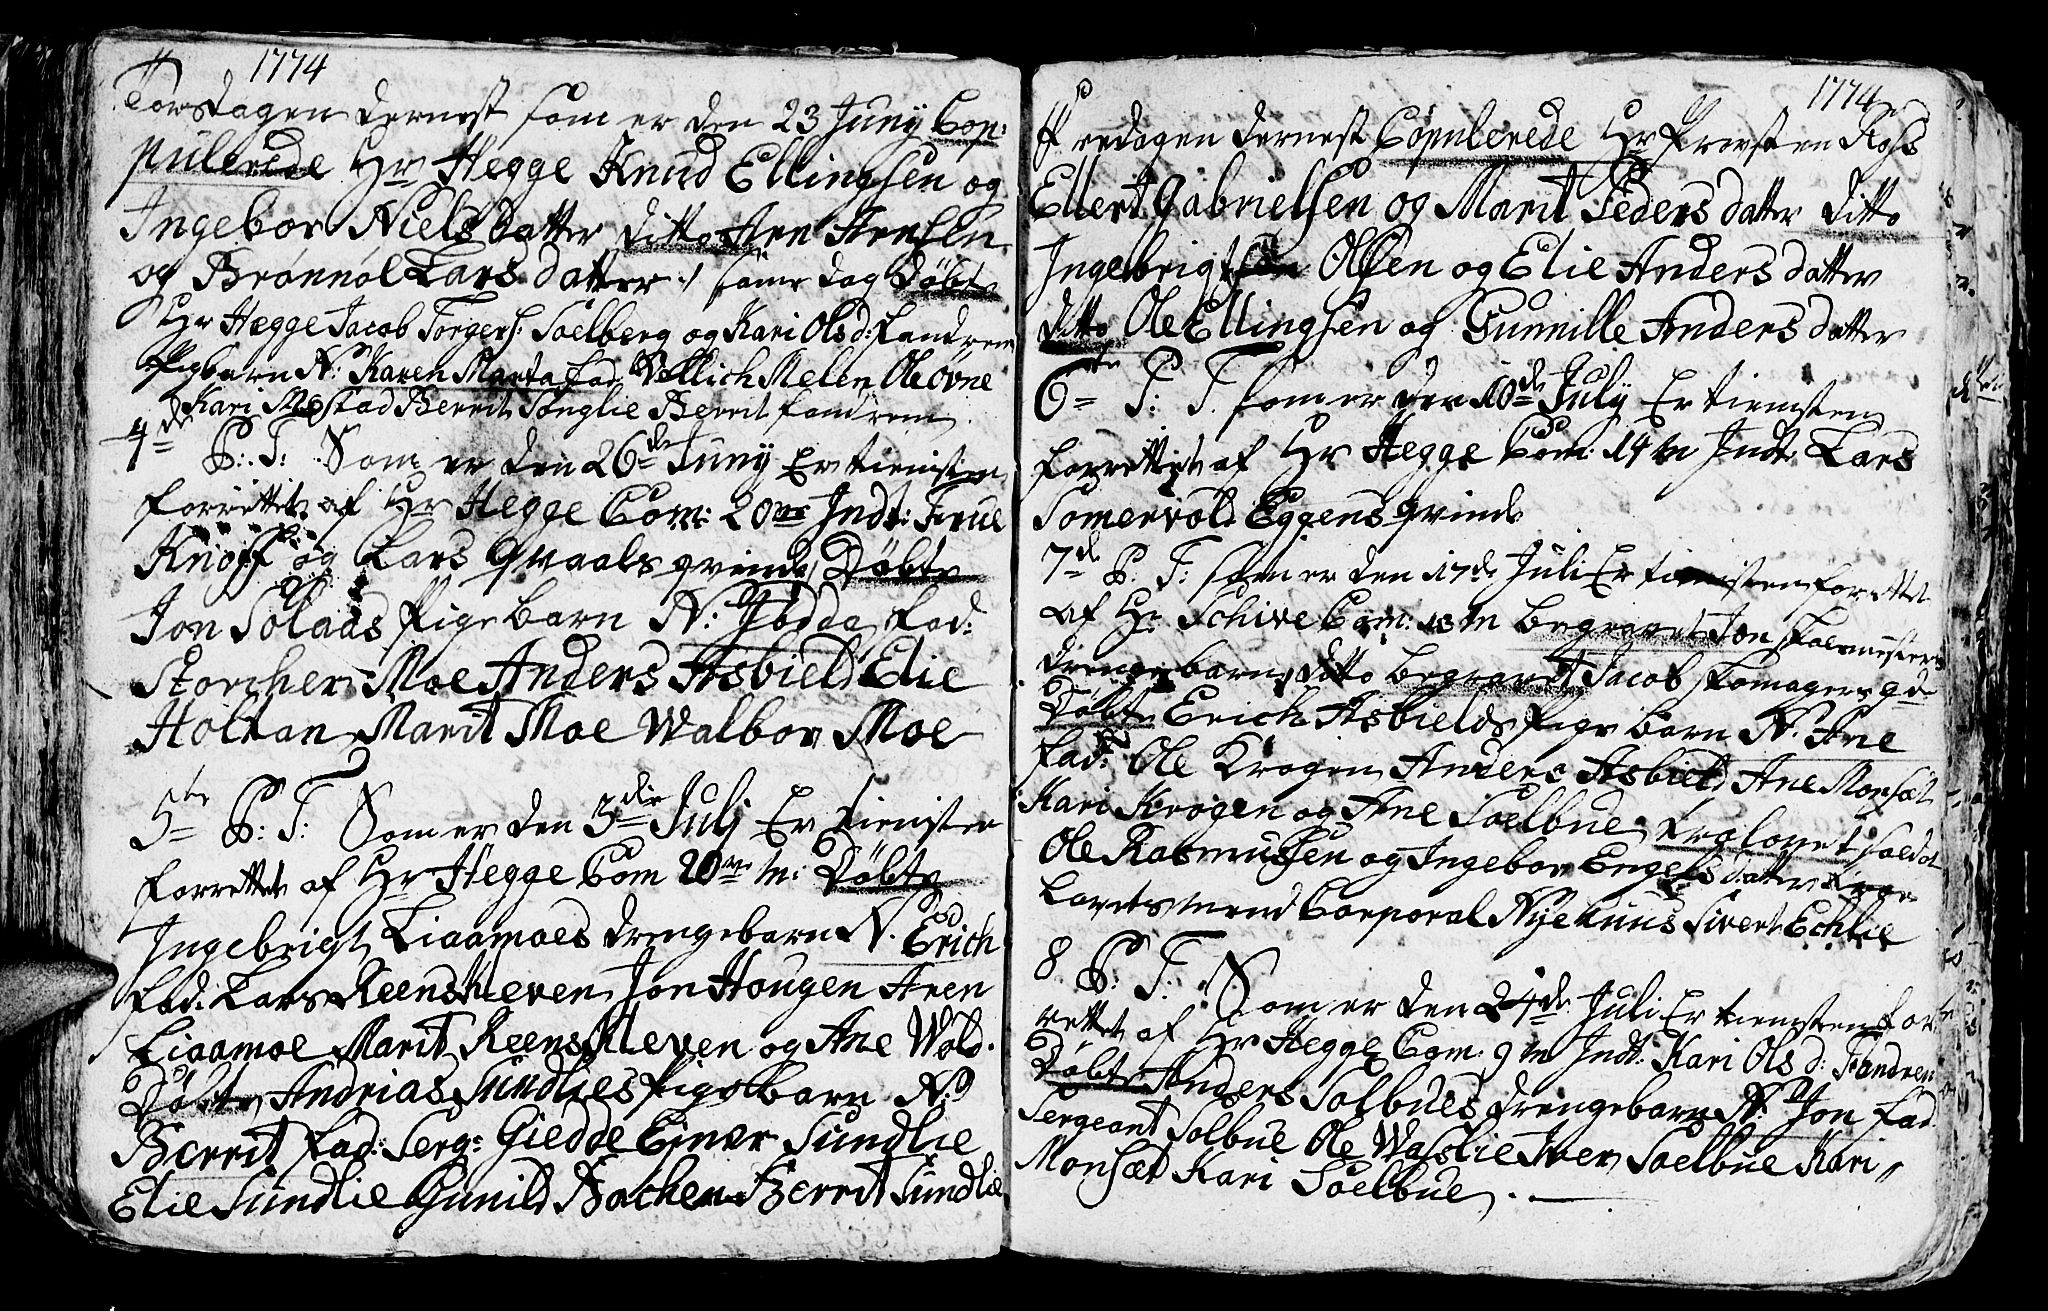 1774
Torsdagen dernest som er den 23 Juny Cop:
pulerede Hr Hegge Knud Ellingsen og
Ingebor Niels datter ditto Aren Arensen
og Brønnøl Lars datter / same dag Døbt
Hr Hegge Jacob Torgers: Soelberg og Kari Ols d: Fandrem
Pigbarn N: Karen Marta fad Vellich Melen Ole Øvne
Kari Mostad Berrit Songlie Berrit fandrem
4de P: T: Som er den 26de Juny Er tienisten
forrettet af Hr Hegge Com: 20 m Indt: Frue
Knoff og Lars Qvaals qvinde Døbt
Jon Solaas Pige barn N: Ibdda fad:
Storcher Moe Anders Asbield Elie
Holtan Marit Moe Walbor Moe
5te P: T: Som er den 3die Julj Er tienisten
forrettet af Hr Hegge Com 20 m: Døbt
Ingebrigt Liaamoes drengebarn N. Erich
fad: Lars Reenskleven Jon Hougen Aren
Liaamoe Marit Reenskleven og Ane Wold.
Døbt Andrias Sundlies Pigebarn N:
Berrit fad: Serg: Giedde Ejner Sundlie
Elie Sundlie Gunild Bachen Berrit Sundlie
1774
Fredagen dernest Copulerede Hr Provsten Ross
Ellert Gabrielsen og Marit Peders datter ditto
Ingebrigt Olsen og Elie Anders datter
ditto Ole Ellingsen og Gunnille Anders datter
6te P: T. som er den 10de July Er tienisten
forrettet af Hr Hegge Com: 14 m Indt: Lars
Somervold Eggens qvinde
7de P: T: som er den 17de Juli Er tienisten forrettet
af Hr Schive Com: 13 m begravet Jon skolemesters
drengebarn ditto begravet Jacob skomagers qd
Døbt Erich Asbields Pige barn N. Ane
fad: Ole Krogen Anders Asbield Ane Monsæt
Kari Krogen og Ane Soelbue Trolovet soldat
Ole Rasmussen og Ingebor Engels datter
Lovesmend Corporal Nyehuus Sivert Echlie
8 P: T: Som er den 24de Juli Er tienisten for
rettet af Hr Hegge Com: 9 m Indt: Kari Ols d: Fandrem
Døbt Anders Solbues drengebarn N: Jon fad
Sergeant Solbue Ole Waslie Iver Soelbue Kari
Monsæt Kari Soelbue